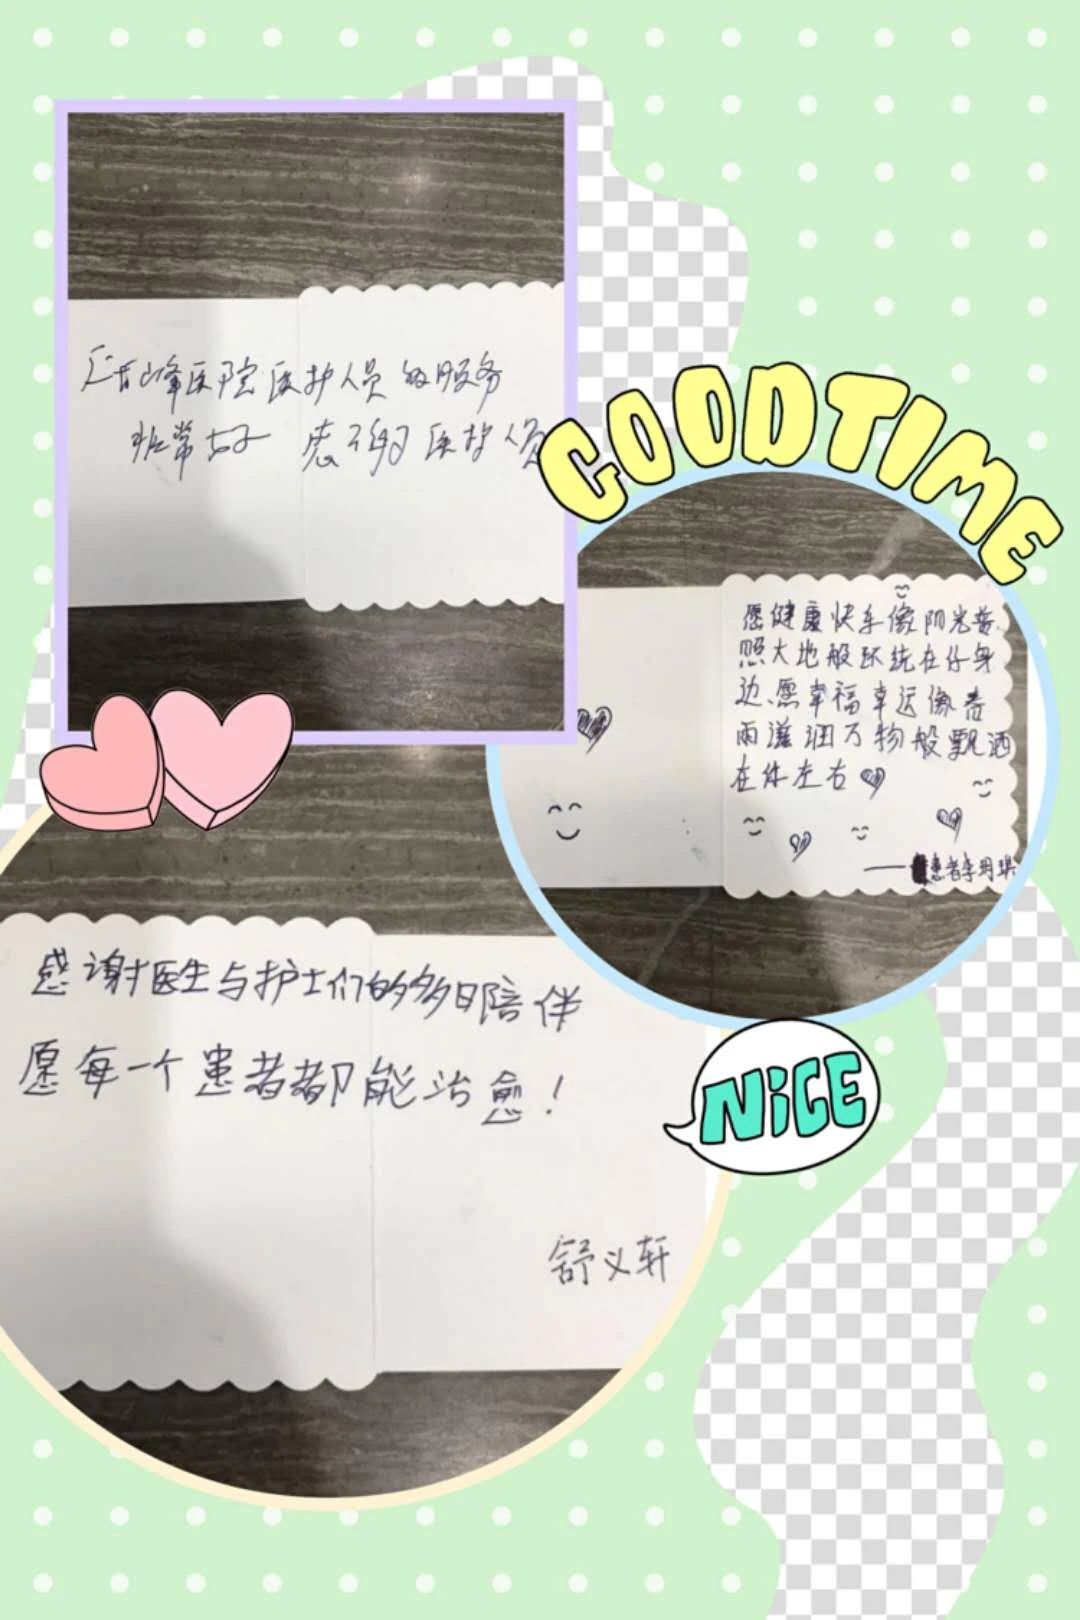 峰医院医护人员的服务
非常好 感谢医护人员
GOODTIME
愿健康快乐像阳光普
照大地般环绕在你身
边、愿幸福幸运像春
雨滋润万物般飘洒
在你左右
——患者李玥
感谢医生与护士们的多日陪伴
愿每一个患者都能治愈！
舒义轩
NiCE